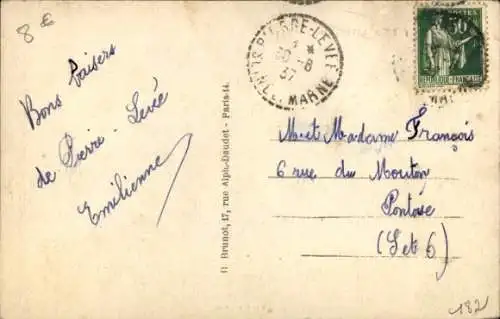 8 €
Bons baisers
de Pierre-Levée
Emilienne
D Brunot, 17, rue Alph.-Daudet - Paris-14.
PIERRE-LEVÉE
30-8
37
MARNE
POSTES
50
REPUBLIQUE FRANÇAISE
M et Madame François
6 rue du Mouton
Pontoise
(S et O)
182